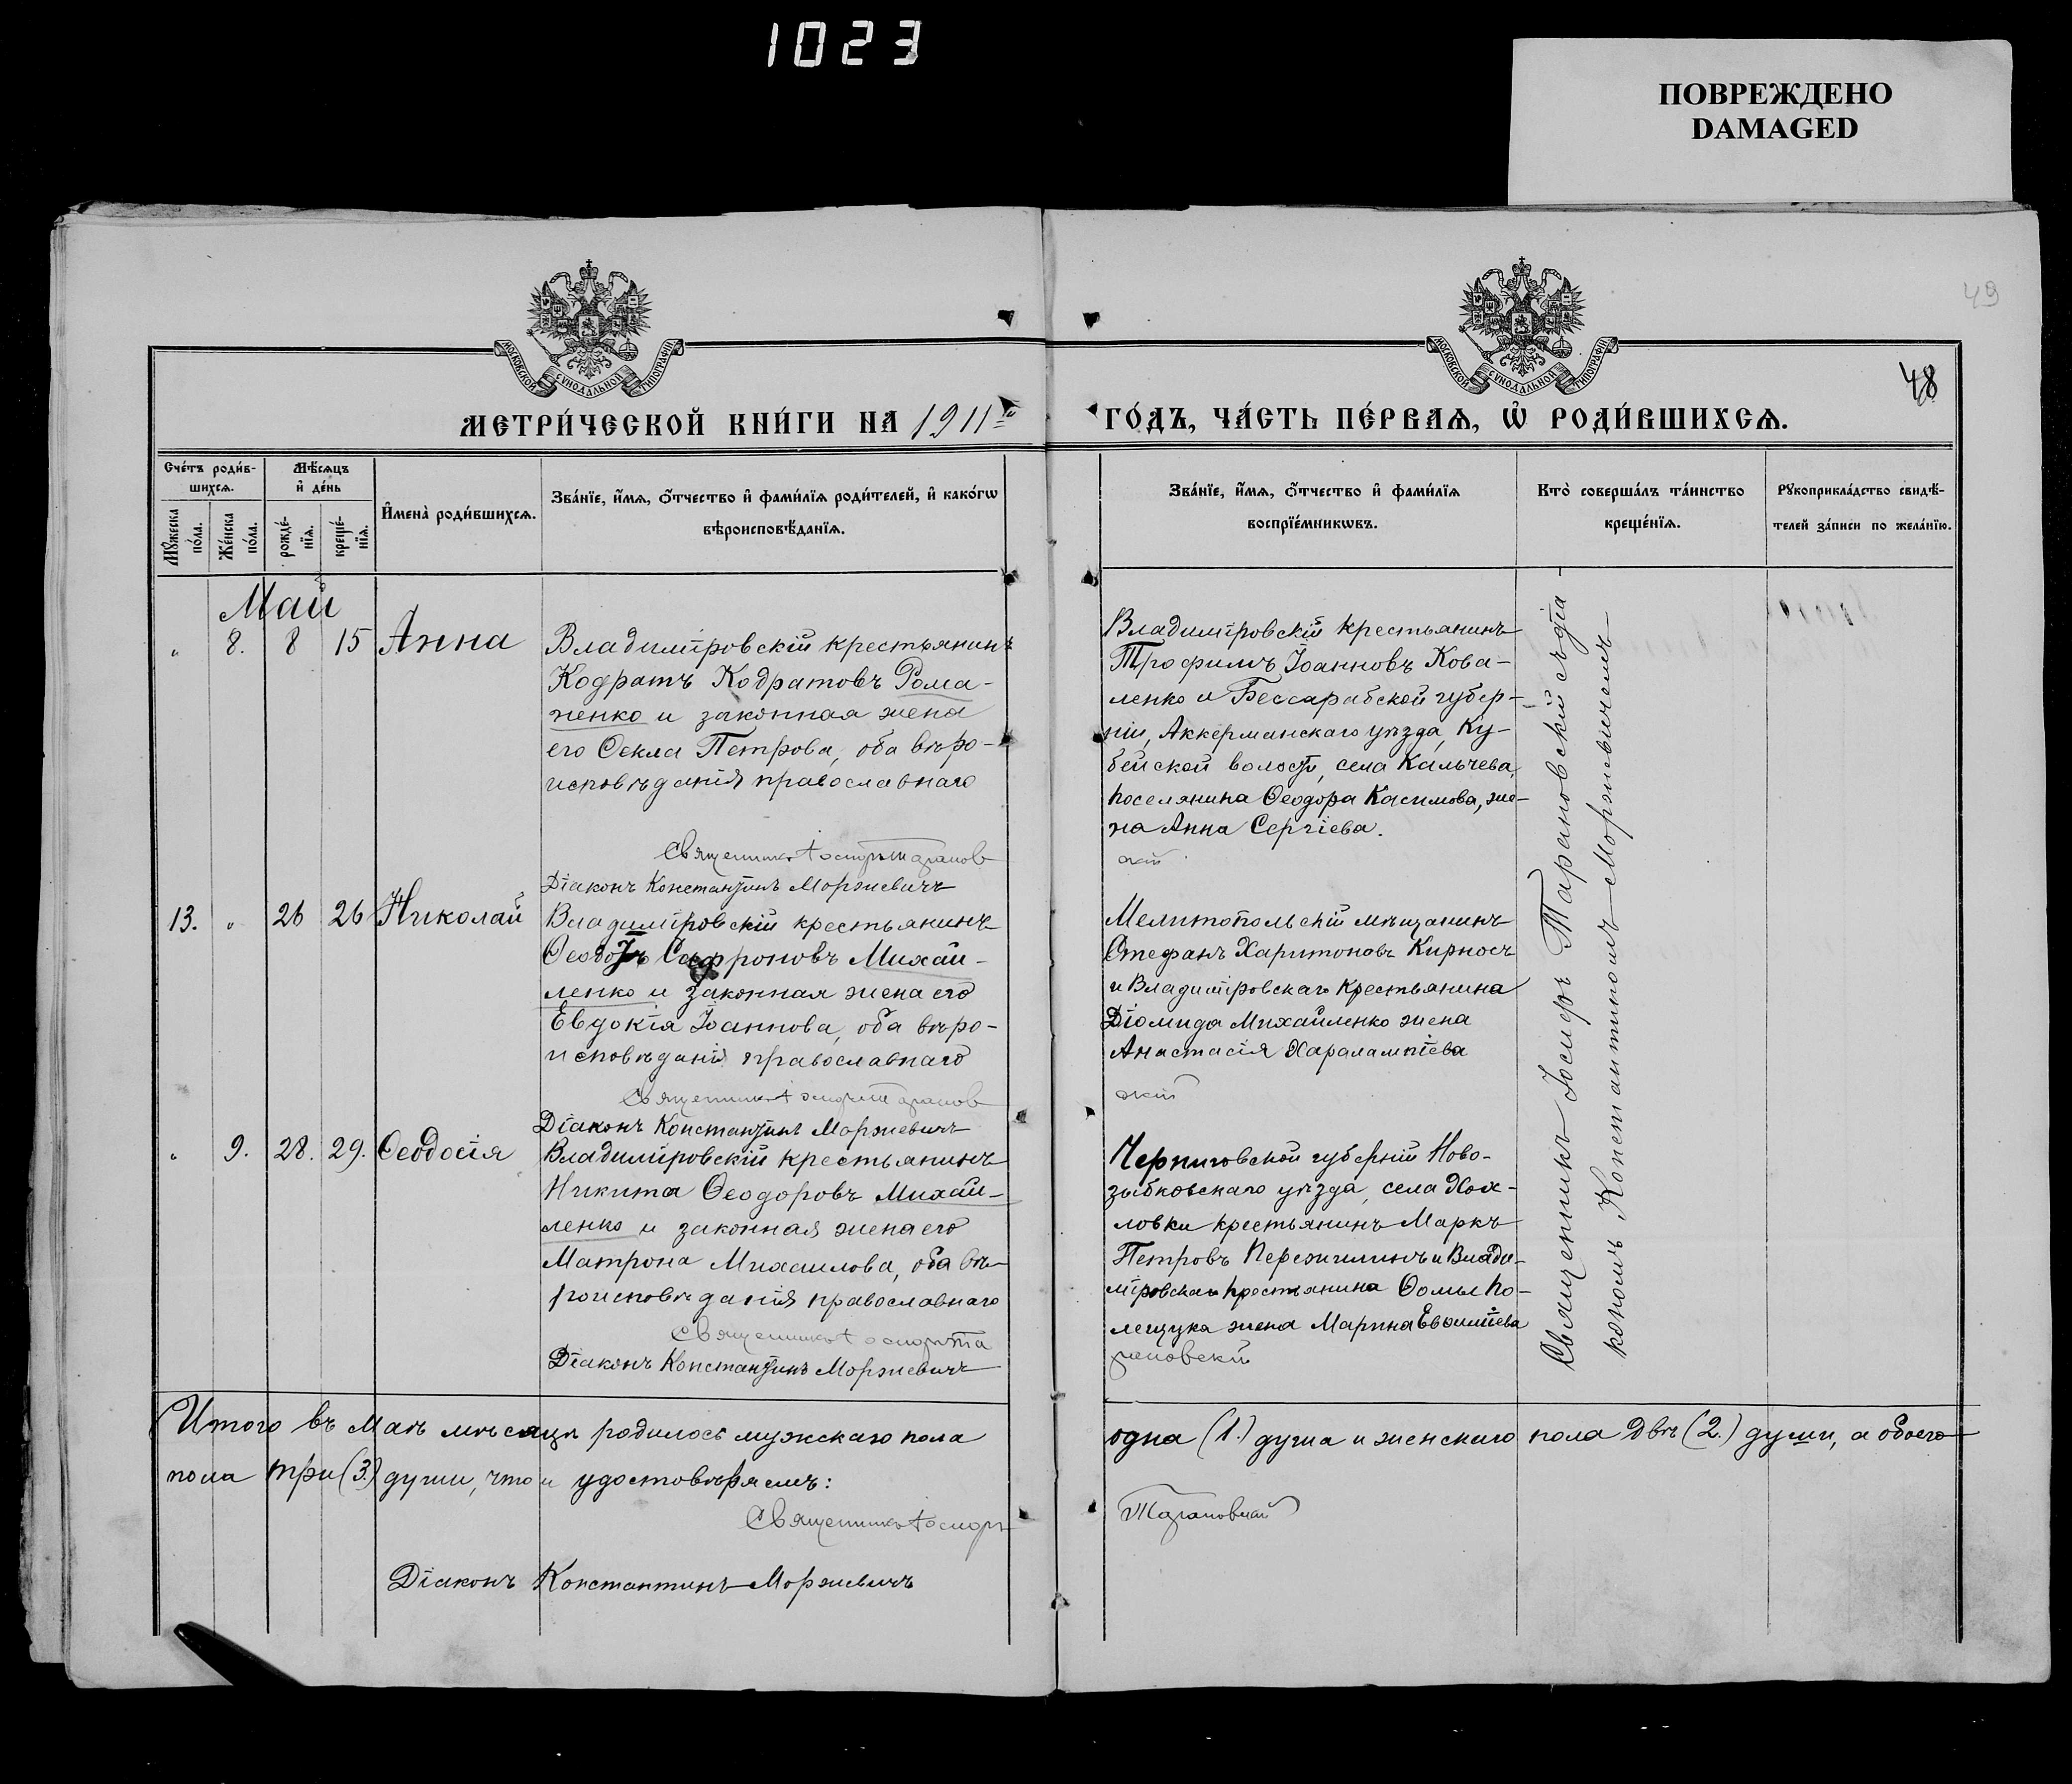 1023
ПОВРЕЖДЕНО
DAMAGED
49
48
МОСКОВСКОЙ СѴНОДАЛЬНОЙ ТИПОГРАФІИ
МОСКОВСКОЙ СѴНОДАЛЬНОЙ ТИПОГРАФІИ
МЕТРИ́ЧЕСКОЙ КНИ́ГИ НА 1911го
ГО́ДЪ, ЧА́СТЬ ПЕ́РВАѦ, Ѡ҆ РОДИ́ВШИХСѦ.
Сче́тъ роди́в-
шихсѧ.
Мꙋ́жеска по́ла.
Же́нска по́ла.
Мѣ́сѧцъ
и҆ де́нь
рожде́-
нїѧ.
креще́-
нїѧ.
И҆мена̀ роди́вшихсѧ.
Зва́нїе, и҆́мѧ, ѻ҆́тчество и҆ фами́лїѧ роди́телей, и҆ како́гѡ
вѣроисповѣ́данїѧ.
Зва́нїе, и҆́мѧ, ѻ҆́тчество и҆ фами́лїѧ
воспрїе́мникѡвъ.
Кто̀ соверша́лъ та́инство
креще́нїѧ.
Рꙋкоприкла́дство свидѣ́-
телей за́писи по жела́нїю.
Май
" 8. 8 15 Анна
Владимíровскій крестьянинъ
Кодратъ Кодратовъ Рома-
ненко и законная жена
его Ѳекла Петрова, оба вѣро-
исповѣданія православнаго
Священникъ Іосифъ Таранов
Діаконъ Константинъ Моржевичъ
Владимíровскій крестьянинъ
Трофимъ Іоанновъ Кова-
ленко и Бессарабской губер-
ніи, Аккерманскаго уѣзда, Ку-
бейской волости, села Кальчева,
поселянина Ѳеодора Касимова, же-
на Анна Сергіева.
скій
13. " 26 26 Николай
Владимíровскій крестьянинъ
Ѳеодотъ Сафроновъ Михай-
ленко и законная жена его
Евдокія Іоаннова, оба вѣро-
исповѣданія православнаго
Священникъ Іосифъ Таранов
Діаконъ Константинъ Моржевичъ
Мелитопольскій мѣщанинъ
Стефанъ Харитоновъ Кирносъ
и Владимíровскаго крестьянина
Діомида Михайленко жена
Анастасія Харалампіева
скій
" 9. 28. 29. Ѳеодосія
Владимíровскій крестьянинъ
Никита Ѳеодоровъ Михай-
ленко и законная жена его
Матрона Михаилова, оба вѣ-
роисповѣданія православнаго
Священникъ Іосифъ Та
Діаконъ Константинъ Моржевичъ
Черниговской губерніи Ново-
зыбковскаго уѣзда, села Хох-
ловки крестьянинъ Маркъ
Петровъ Пережилинъ и Влади-
мíровскаго крестьянина Ѳомы По-
лещука жена Марина
рановскій
Священникъ Іосифъ Тарановскій съ діа-
кономъ Константиномъ Моржевичемъ
Итого въ Маѣ мѣсяцѣ родилось мужскаго пола
одна (1.) душа и женскаго пола двѣ (2.) души, а обоего
пола три (3.) души, что и удостовѣряемъ:
Священникъ Іосифъ
Тарановскій
Діаконъ Константинъ Моржевичъ